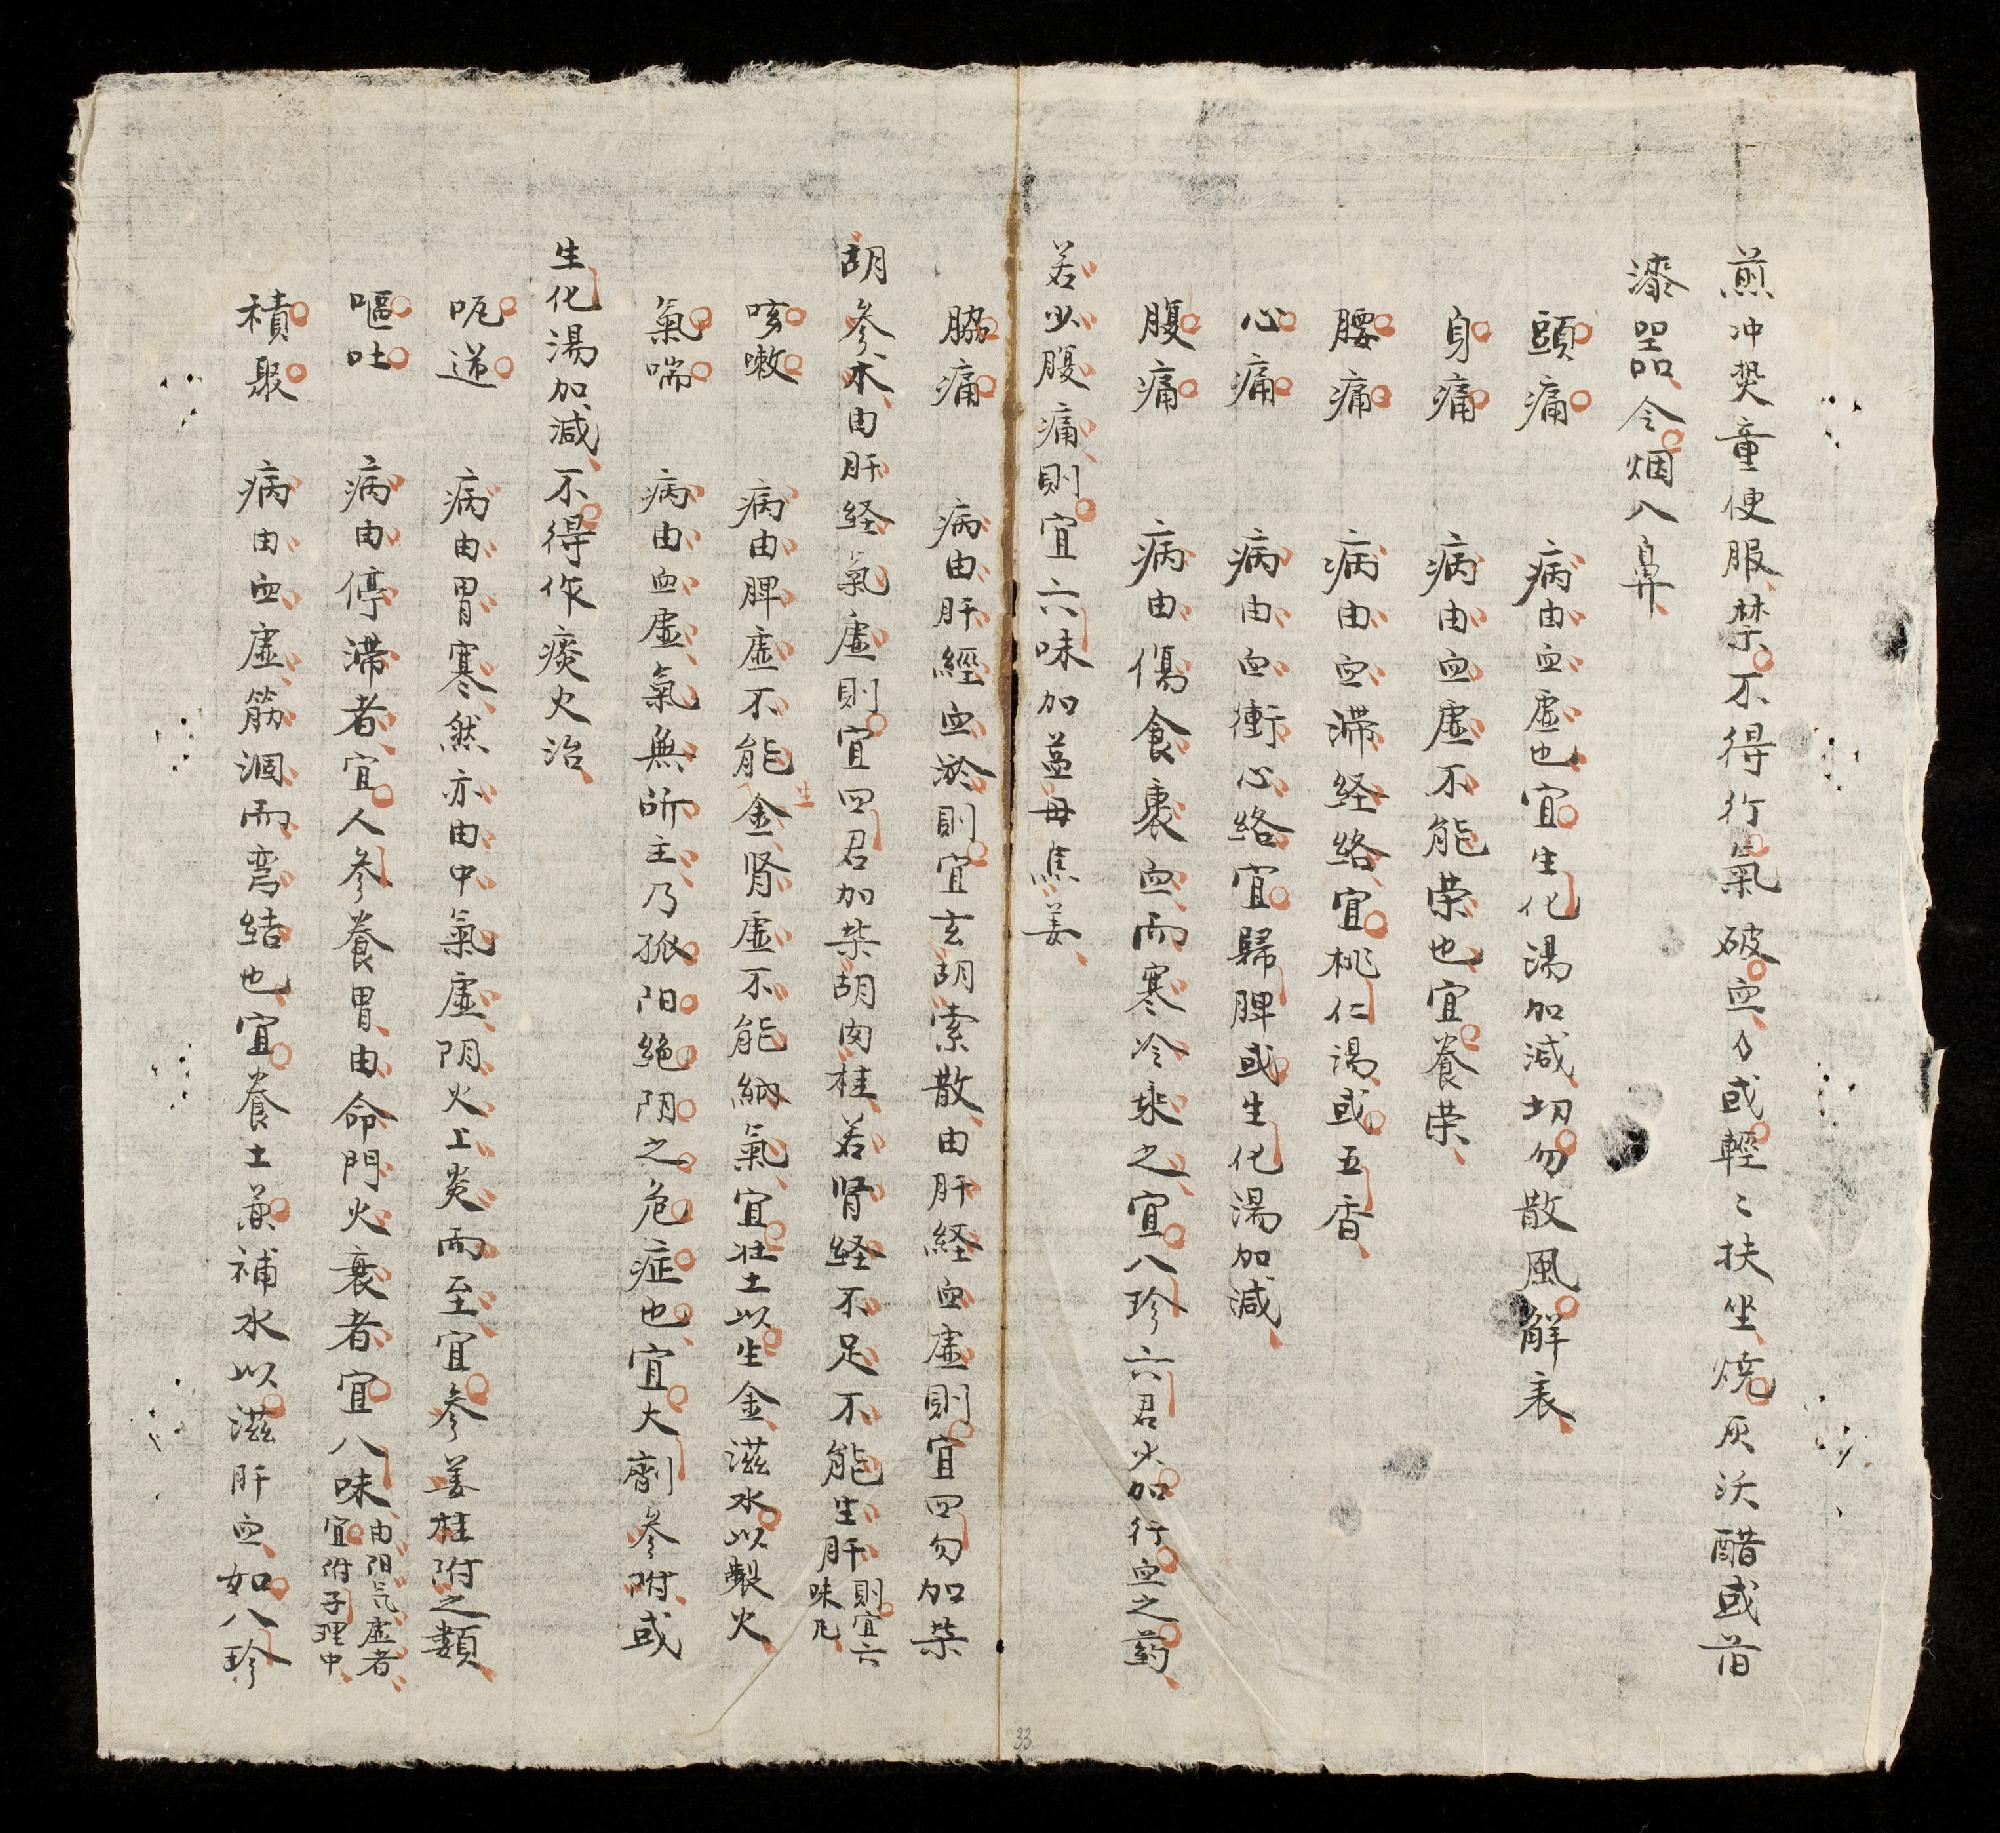 煎冲熱童便服禁不得行氣破血力或輕〻扶坐燒灰沃醋或旧
漆器令烟入鼻
頭痛 病由血虛也宜生化湯加減切勿散風解表
身痛 病由血虛不能荣也宜養荣
腰痛 病由血滯経絡宜桃仁湯或五香
心痛 病由血衝心絡宜歸脾或生化湯加減
腹痛 病由傷食裹血而寒冷乘之宜八珍六君少加行血之药
若少腹痛則宜六味加益母焦姜
脇痛 病由肝經血淤則宜玄胡索散由肝経血虛則宜四勿加柴
胡參朮由肝経氣虛則宜四君加柴胡肉桂若肾経不足不能生肝則宜六味凡
咳嗽 病由脾虛不能生金肾虛不能納氣宜壯土以生金滋水以製火
氣喘 病由血虛氣無所主乃孤阳絕阴之危症也宜大劑參附或
生化湯加減不得作痰火治
呃逆 病由胃寒然亦由中氣虛阴火上炎而至宜參姜桂附之類
嘔吐 病由停滯者宜人參養胃由命門火衰者宜八味由阳气虛者宜附子理中
積聚 病由血虛筋涸而弯結也宜養土兼補水以滋肝血如八珍
33